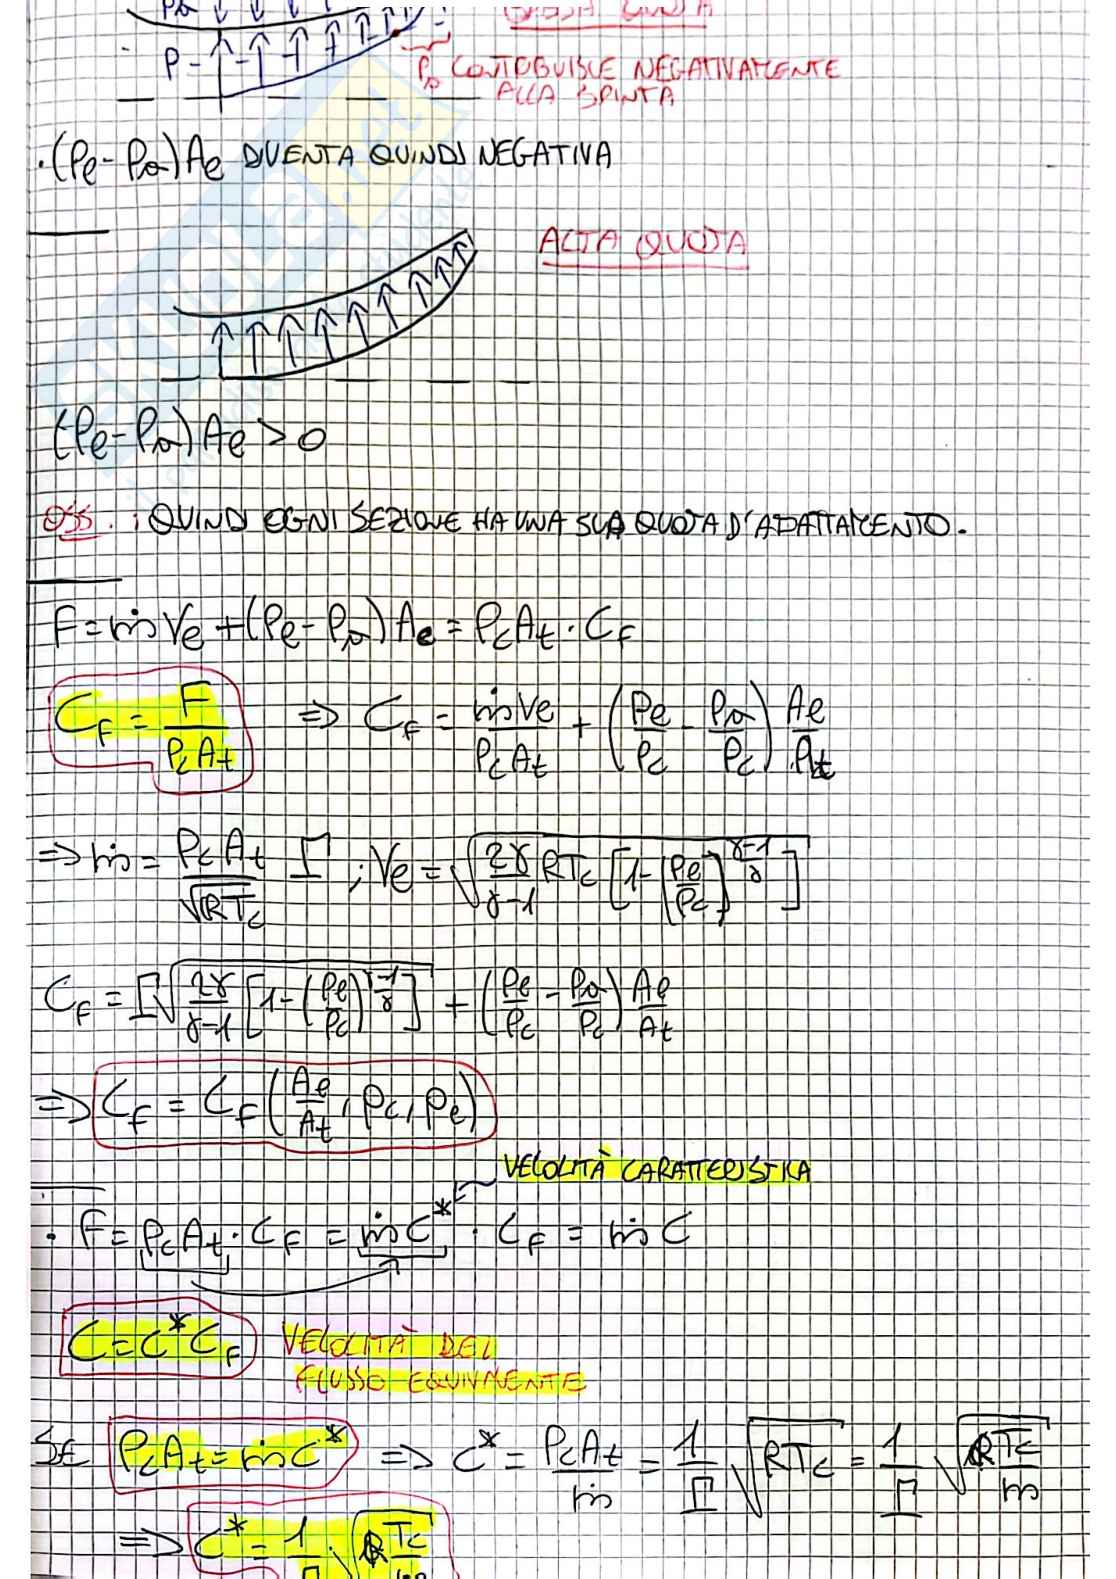 P
BASSA QUOTA
Pa CONTRIBUISCE NEGATIVAMENTE
ALLA SPINTA
.net
·(Pe-Pa)Ae DIVENTA QUINDI NEGATIVA
ALTA QUOTA
(Pe-Pa)Ae>0
OSS.: QUINDI OGNI SEZIONE HA UNA SUA QUOTA D'ADATTAMENTO.
F=ṁVe+(Pe-Pa)Ae=PcAt·CF
CF=F/(PcAt) ⇒ CF=ṁVe/(PcAt)+(Pe/Pc-Pa/Pc)Ae/At
⇒ṁ=PcAt/√(RTc) Γ; Ve=√(2γ/(γ-1) RTc[1-(Pe/Pc)^((γ-1)/γ)])
CF=Γ√(2γ/(γ-1)[1-(Pe/Pc)^((γ-1)/γ)])+(Pe/Pc-Pa/Pc)Ae/At
⇒ CF=CF(Ae/At, Pc, Pe)
VELOCITÀ CARATTERISTICA
· F=PcAt·CF=ṁC*·CF=ṁC
C=C*CF VELOCITÀ DEL
FLUSSO EQUIVALENTE
SE PcAt=ṁC* ⇒ C*=PcAt/ṁ=1/Γ √(RTc)=1/Γ √(RTc/m)
⇒ C*=1/Γ √(RTc/m)